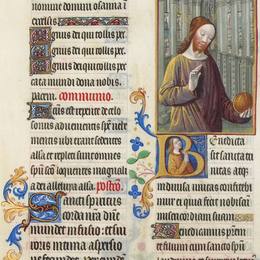 nomine domini osanna i
excelsis
Agnus dei qui tollis pec.
Agnus dei qui tollis pec.
Agnus dei qui tollis pec
cata mundi dona nobis
pacem. communio.
Factus est repente de celo
sonus advenientis spūs vehe
mentis ubi erant sedentes
alla et repleti sunt omnes
spū sco loquentes magnali
a dei alleluya alla. postco.
Sancti spiritus
corda nrā dn̄e
mundet infusio: et sui
roris intima aspersio
ne fecundet. per
Benedicta
sit sancta tri
nitas atqʒ
indivisa unitas confitebi
mur ei quia fecit nobiscum
misericordiam suam
Benedicamus patrem
et filium cum sancto spū